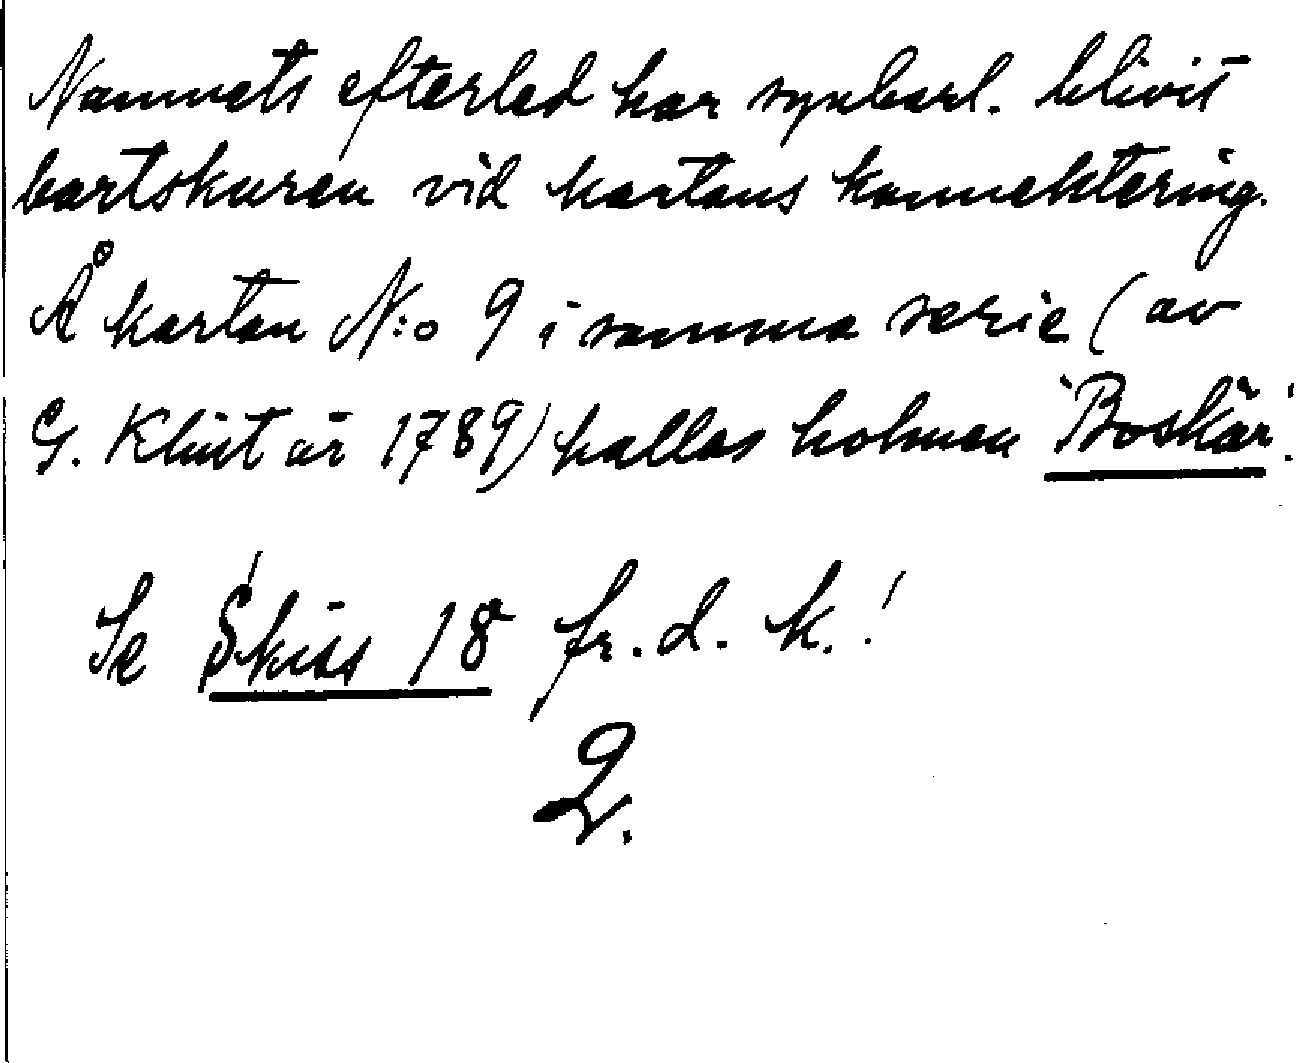 Namnets efterled har synbarl. blivit
bortskuren vid kartans konnektering.
Å kartan N:o 9 i samma serie (av
G. Klint år 1789) kallas holmen 'Boskär'.
Se Skiss 18 fr. d. k.!
2.